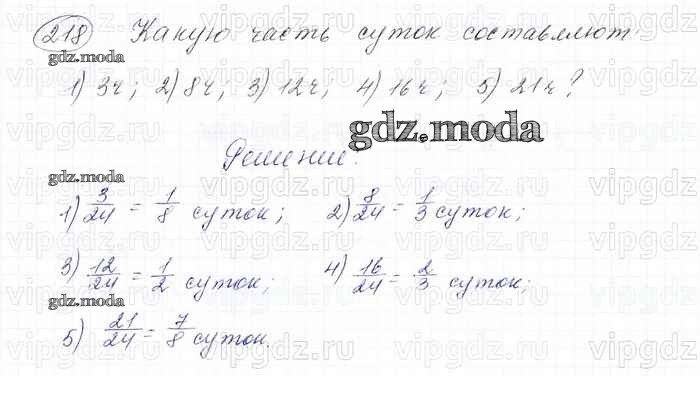 218 Какую часть суток составляют:
gdz.moda
1) 3ч; 2) 8ч; 3) 12ч; 4) 16ч; 5) 21ч?
gdz.moda
Решение:
gdz.moda
1) 3/24 = 1/8 суток; 2) 8/24 = 1/3 суток;
3) 12/24 = 1/2 суток; 4) 16/24 = 2/3 суток;
gdz.moda
5) 21/24 = 7/8 суток.
vipgdz.ru